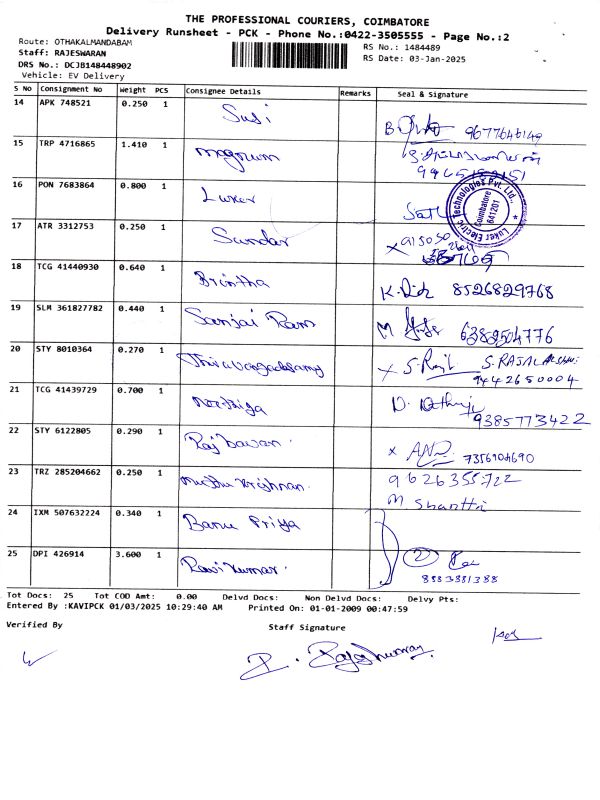 THE PROFESSIONAL COURIERS, COIMBATORE
Delivery Runsheet - PCK - Phone No.:0422-3505555 - Page No.:2
Route: OTHAKALMANDABAM
RS No.: 1484489
Staff: RAJESWARAN
RS Date: 03-Jan-2025
DRS No.: DCJB148448902
Vehicle: EV Delivery
S No Consignment No Weight PCS Consignee Details Remarks Seal & Signature
14 APK 748521 0.250 1 Susi
B 9677646149
15 TRP 4716865 1.410 1 magnum
16 PON 7683864 0.800 1 Luker
Luker Electric Technologies Pvt. Ltd., Coimbatore 641201
17 ATR 3312753 0.250 1 Sundar
18 TCG 41440930 0.640 1 Brintha
K. 8526829768
19 SLM 361827782 0.440 1 Sanjai Ram
M 6382504776
20 STY 8010364 0.270 1
x S. S. RAJALAKSHMI
9442650004
21 TCG 41439729 0.700 1
D. 9385773422
22 STY 6122805 0.290 1 Raj bavan.
x 7356904690
23 TRZ 285204662 0.250 1 muthu krishnan.
9626355722
M Shanthi
24 IXM 507632224 0.340 1 Banu Priya
25 DPI 426914 3.600 1 Ravi kumar.
2
8883881388
Tot Docs: 25 Tot COD Amt: 0.00 Delvd Docs: Non Delvd Docs: Delvy Pts:
Entered By :KAVIPCK 01/03/2025 10:29:40 AM Printed On: 01-01-2009 00:47:59
Verified By Staff Signature